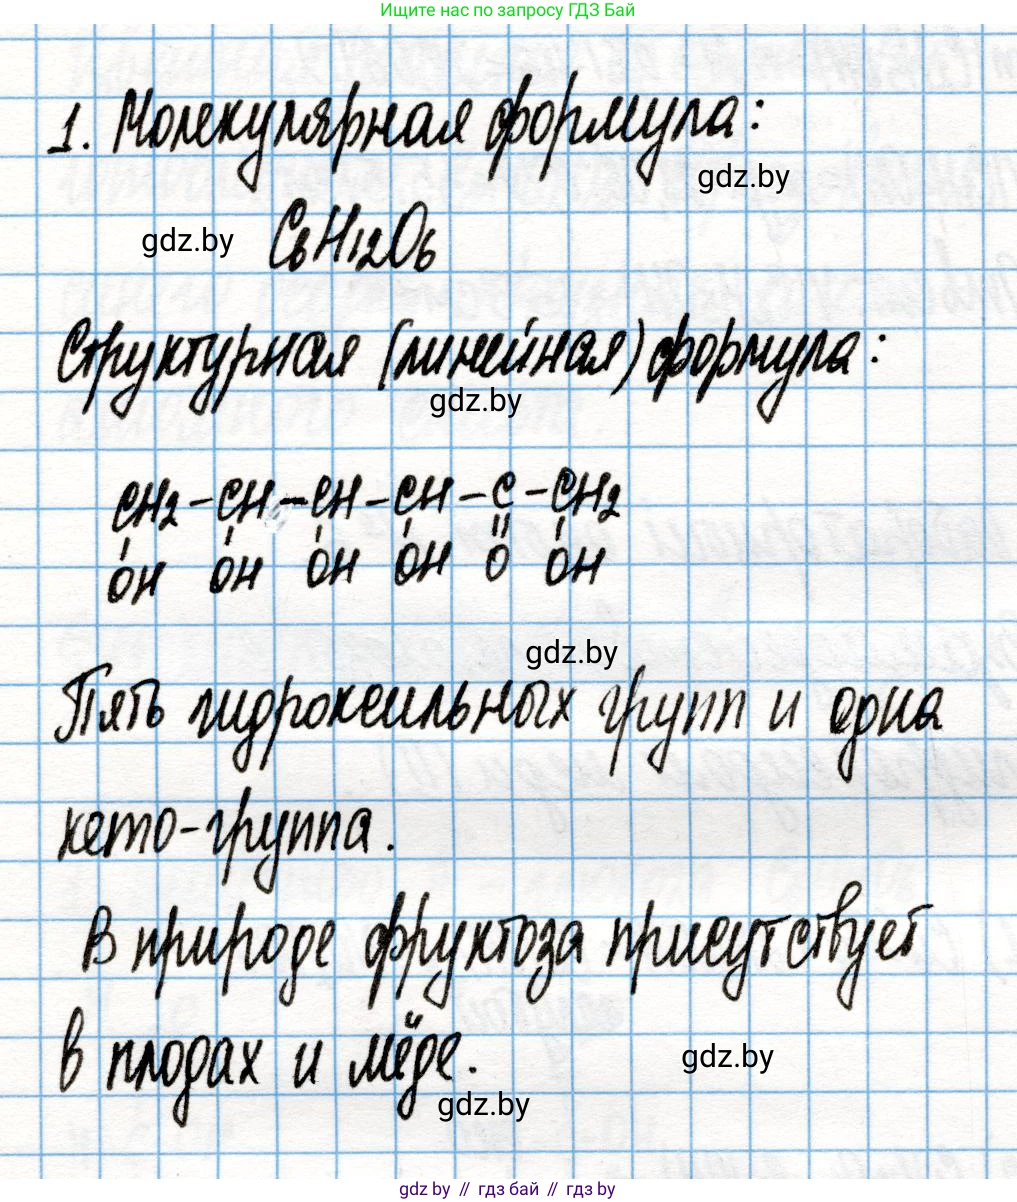 Ищите нас по запросу ГДЗ Бай
1. Молекулярная формула:
gdz.by
gdz.by C₆H₁₂O₆
Структурная (линейная) формула:
gdz.by
CH₂ - CH - CH - CH - C - CH₂
OH OH OH OH O OH
gdz.by
Пять гидроксильных групп и одна
кето-группа.
В природе фруктоза присутствует
в плодах и мёде.
gdz.by
gdz.by
gdz.by // гдз бай // гдз by